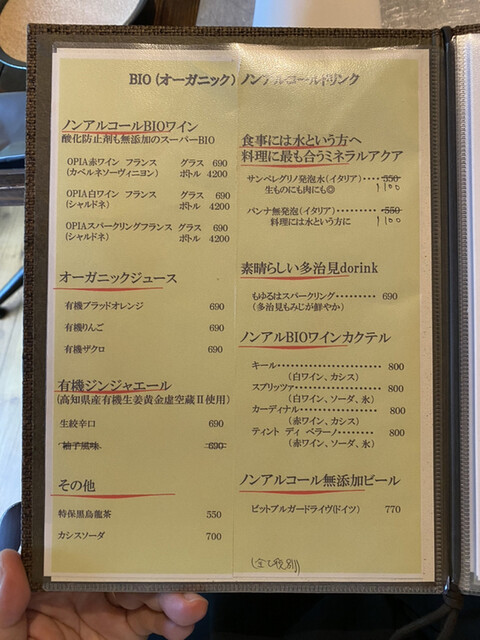 BIO (オーガニック) ノンアルコールドリンク
ノンアルコールBIOワイン
酸化防止剤も無添加のスーパーBIO
OPIA赤ワイン フランス グラス 690
(カベルネソーヴィニヨン) ボトル 4200
OPIA白ワイン フランス グラス 690
(シャルドネ) ボトル 4200
OPIAスパークリングフランス グラス 690
(シャルドネ) ボトル 4200
オーガニックジュース
有機ブラッドオレンジ 690
有機りんご 690
有機ザクロ 690
有機ジンジャエール
(高知県産有機生姜黄金虚空蔵Ⅱ使用)
生絞辛口 690
柚子風味 690
その他
特保黒烏龍茶 550
カシスソーダ 700
食事には水という方へ
料理に最も合うミネラルアクア
サンペレグリノ発泡水(イタリア)‥‥‥ 550
生ものにも肉にも◎ 1100
パンナ無発泡(イタリア)‥‥‥‥‥ 550
料理には水という方に 1100
素晴らしい多治見dorink
もゆるはスパークリング‥‥‥‥ 690
(多治見もみじが鮮やか)
ノンアルBIOワインカクテル
キール‥‥‥‥‥‥‥‥‥‥‥ 800
(白ワイン、カシス)
スプリッツァ‥‥‥‥‥‥‥‥ 800
(白ワイン、ソーダ、氷)
カーディナル‥‥‥‥‥‥‥‥ 800
(赤ワイン、カシス)
ティント ディ ベラーノ‥‥‥‥ 800
(赤ワイン、ソーダ、氷)
ノンアルコール無添加ビール
ビットブルガードライヴ(ドイツ) 770
(全て税別)